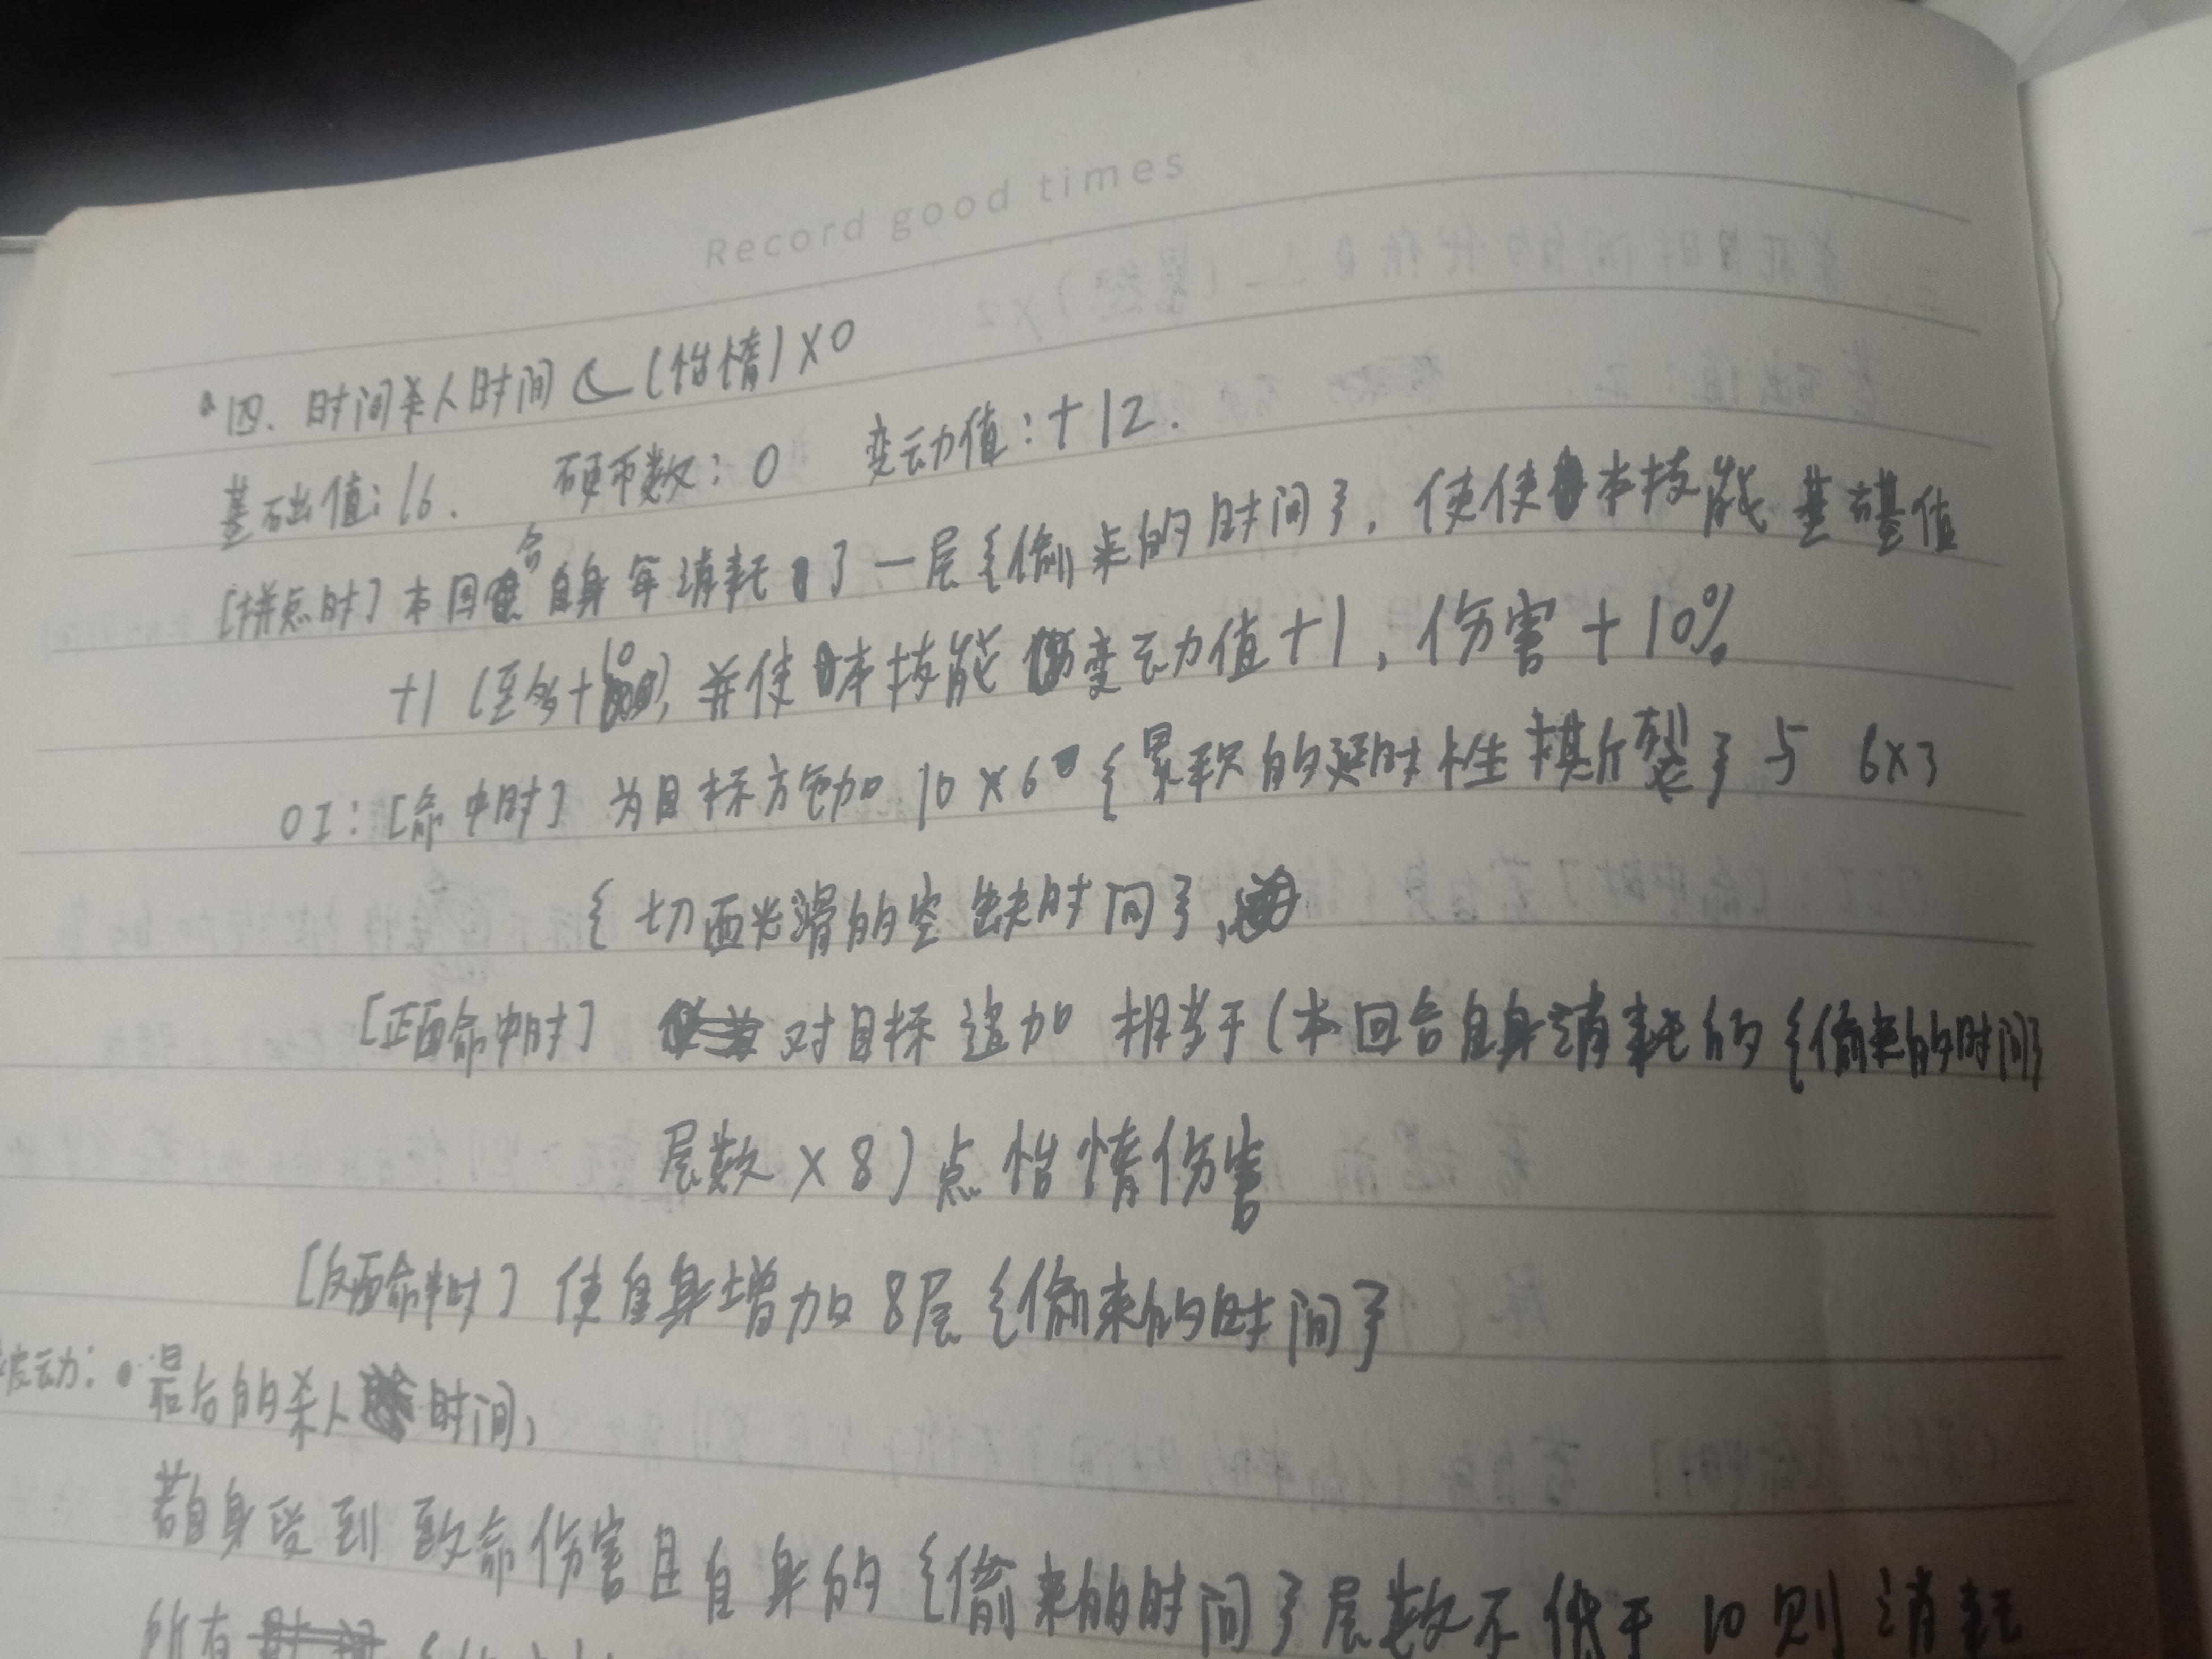 Record good times
四. 时间杀人时间 (怡惰)×0
基础值: 16. 硬币数: 0 变动值: +12.
[拼点时] 本回合自身每消耗了一层{偷来的时间}, 使使本技能基础值
+1 (至多+10), 并使本技能变动值+1, 伤害+10%
OI: [命中时] 为目标施加 10×6 {累积的延时性撕裂}与 6×3
{切面光滑的空缺时间},
[正面命中时] 对目标追加 相当于(本回合自身消耗的{偷来的时间}
层数×8)点怡惰伤害
[反面命中时] 使自身增加8层{偷来的时间}
被动: 最后的杀人时间,
若自身受到致命伤害且自身的{偷来的时间}层数不低于10则消耗
所有